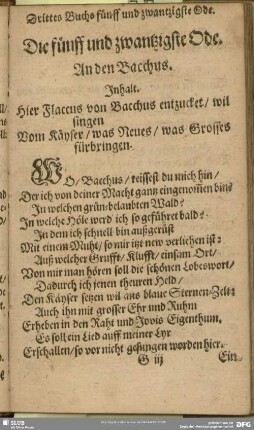 Drittes Buchs fünff und zwantzigste Ode.
Die fünff und zwantzigste Ode.
An den Bacchus.
Inhalt.
Hier Flaccus von Bacchus entzucket/ wil
singen
Vom Käyser/ was Neues/ was Grosses
fürbringen.
WO/ Bacchus/ reissest du mich hin/
Der ich von deiner Macht gantz eingenommen bin?
In welchen grün-belaubten Wald?
In welche Höle werd ich so geführet bald?
In dem ich schnell bin außgerüst
Mit einem Muht/ so mir itzt new verlichen ist?
Auß welcher Grufft/ Klufft/ einsam Ort/
Von mir man hören soll die schönen Lobeswort/
Dadurch ich jenen theuren Held/
Den Käyser setzen wil ans blaue Sternen-Zelt?
Auch ihn mit grosser Ehr und Ruhm
Erheben in den Raht und Jovis Eigenthum.
Es soll ein Lied auff meiner Lyr
Erschallen/ so vor nicht gesungen worden hier.
G iij
Ein-
SLUB
DFG